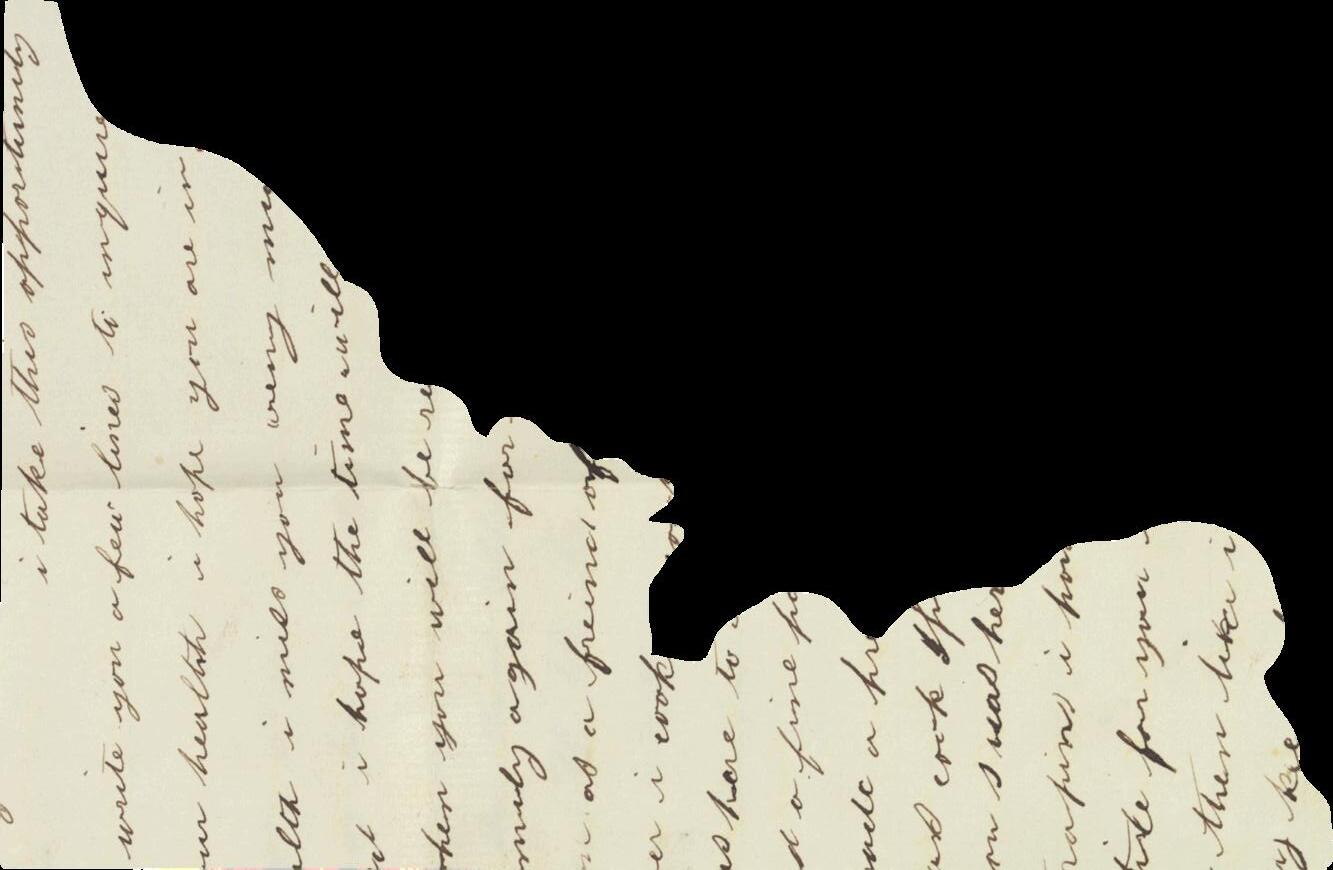 i take this opportunity
write you a few lines to inquire
ur health i hope you are in
alth i miss you very mu
i hope the time will
when you will be re
again for
as a freind of
er i cook
s here to
a fine
made a
cook
on s was her
i ho
for your
them like i